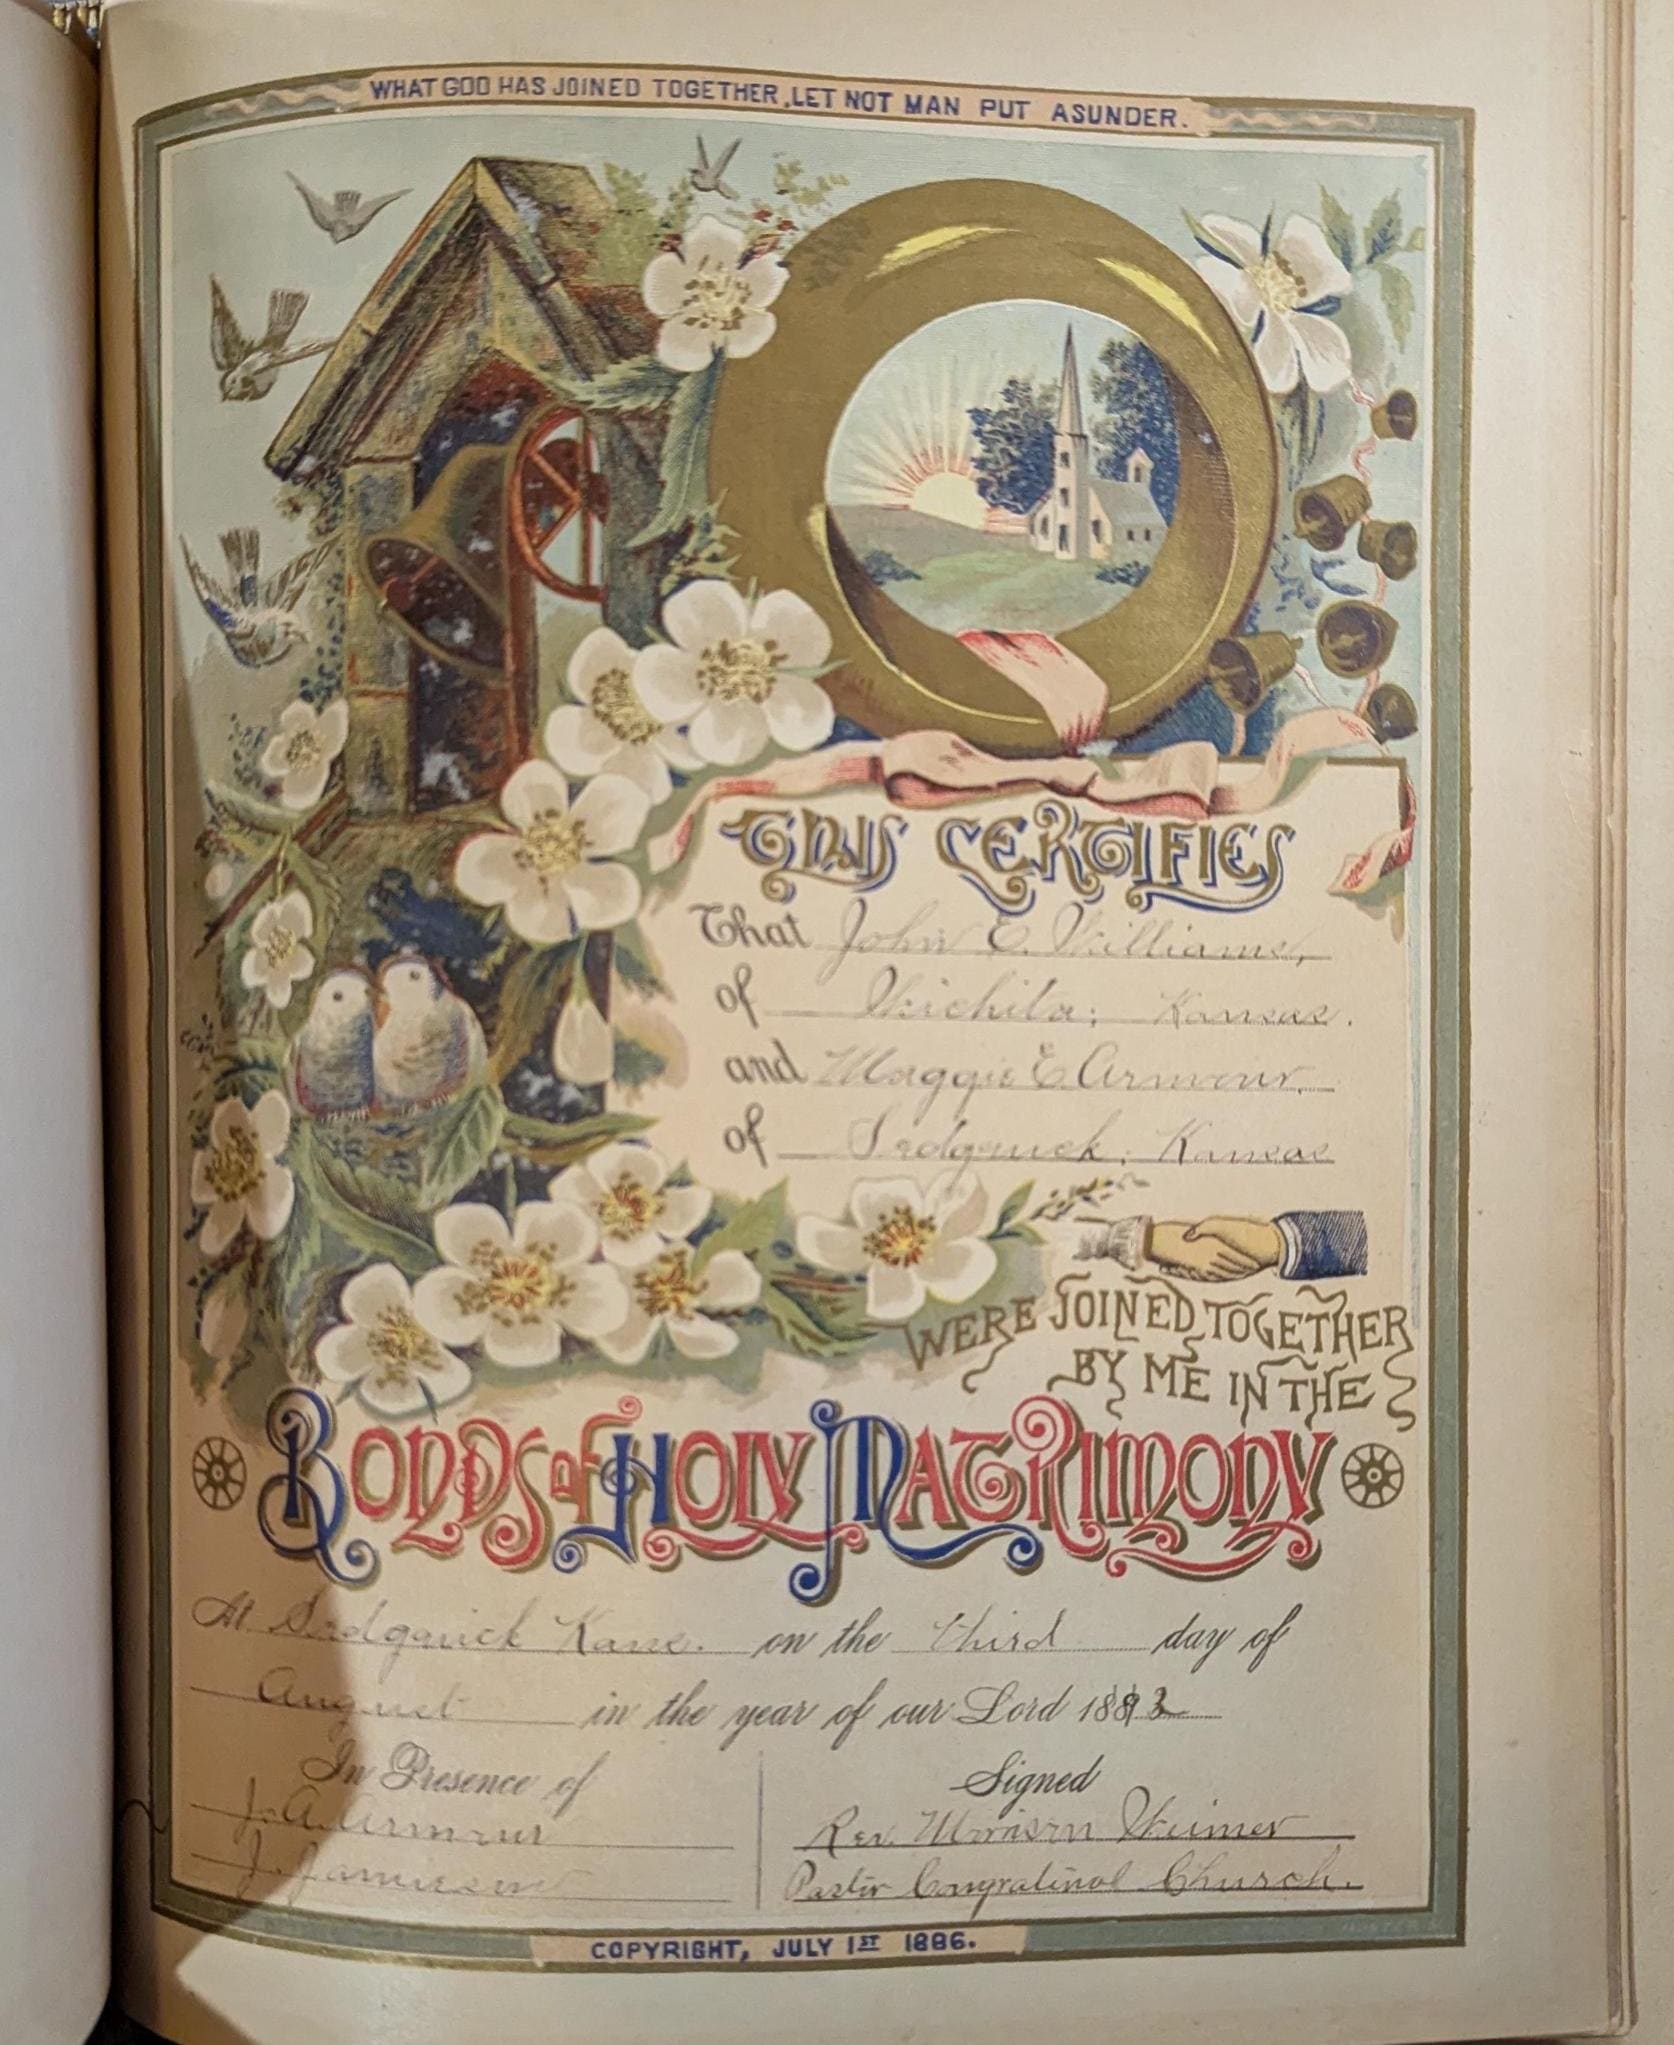 WHAT GOD HAS JOINED TOGETHER, LET NOT MAN PUT ASUNDER.
THIS CERTIFIES
That John E. Williams,
of Wichita; Kansas.
and Maggie E Armour.
of Sedgwick; Kansas
WERE JOINED TOGETHER
BY ME IN THE
BONDS of HOLY MATRIMONY
At Sedgwick Kans. on the third day of
August in the year of our Lord 1892
In Presence of
J. A. Armour
J. Jamieson
Signed
Rev. Morrison
Pastor Congratinol Church.
COPYRIGHT, JULY 1ST 1886.